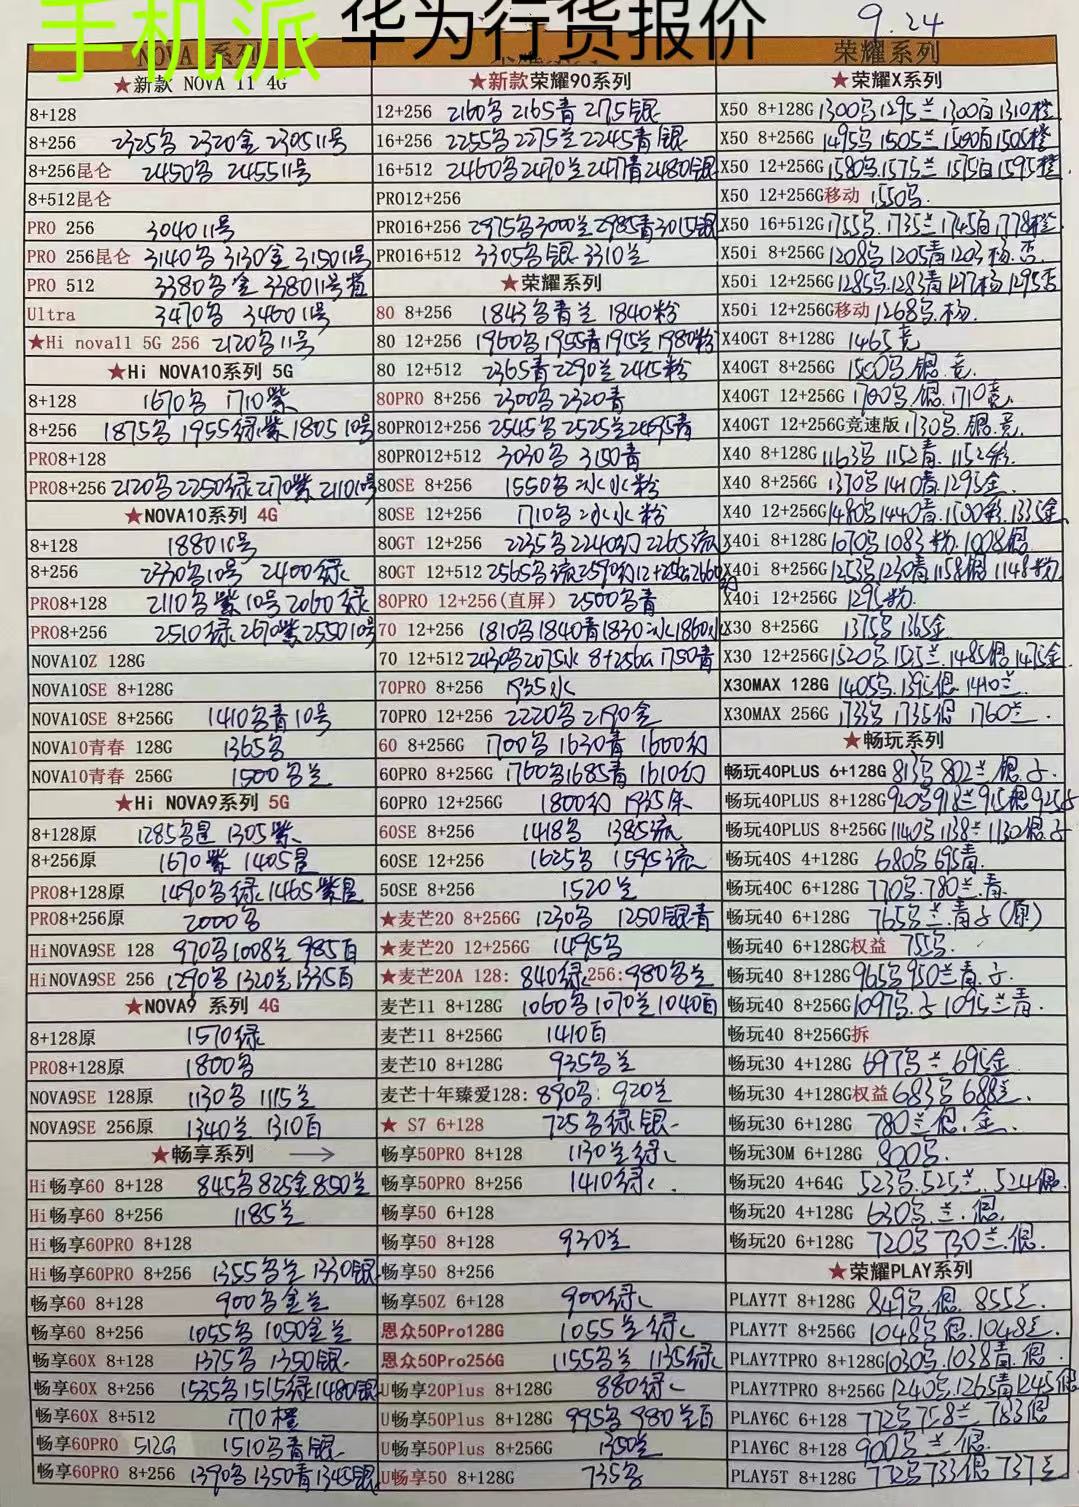 手机派 华为行货报价 9.24
NOVA 系列
★新款 NOVA 11 4G
8+128
8+256 2325 2320金 2305 11号
8+256昆仑 2450 2455 11号
8+512昆仑
PRO 256 3040 11号
PRO 256昆仑 3140 3130金 3150 11号
PRO 512 3380 金 3380 11号
Ultra 3470 3460 11号
★Hi nova11 5G 256 2120 11号
★Hi NOVA10系列 5G
8+128 1670 1710紫
8+256 1875 1955绿紫 1805 10号
PRO8+128
PRO8+256 2120 2250绿 2170紫 2110 10号
★NOVA10系列 4G
8+128 1880 10号
8+256 2330 10号 2400绿
PRO8+128 2110 紫 10号 2060绿
PRO8+256 2510绿 2670紫 2550 10号
NOVA10Z 128G
NOVA10SE 8+128G
NOVA10SE 8+256G 1410 青 10号
NOVA10青春 128G 1365
NOVA10青春 256G 1500 兰
★Hi NOVA9系列 5G
8+128原 1285 1305紫
8+256原 1670紫 1405
PRO8+128原 1490 绿 1465紫
PRO8+256原 2000
HiNOVA9SE 128 970 1008兰 985百
HiNOVA9SE 256 1290 1320兰 1335百
★NOVA9 系列 4G
8+128原 1570绿
PRO8+128原 1800
NOVA9SE 128原 1130 1115兰
NOVA9SE 256原 1340兰 1310百
★畅享系列 →
Hi畅享60 8+128 845 825金 850兰
Hi畅享60 8+256 1185兰
Hi畅享60PRO 8+128
Hi畅享60PRO 8+256 1355 兰 1330银
畅享60 8+128 900 金兰
畅享60 8+256 1055 1050金兰
畅享60X 8+128 1375 1350银
畅享60X 8+256 1535 1515绿 1480银
畅享60X 8+512 1770橙
畅享60PRO 512G 1510 青银
畅享60PRO 8+256 1390 1350青 1345银
★新款荣耀90系列
12+256 2160 2165青 2175银
16+256 2255 2275兰 2245青银
16+512 2460 2470兰 2477青 2480银
PRO12+256
PRO16+256 2975 3000兰 2985青 3015银
PRO16+512 3305 银 3310兰
★荣耀系列
80 8+256 1843 青兰 1840粉
80 12+256 1960 1955青 1915兰 1980粉
80 12+512 2365青 2290兰 2415粉
80PRO 8+256 2300 2320青
80PRO12+256 2545 2525兰 2495青
80PRO12+512 3030 3150青
80SE 8+256 1550 冰水粉
80SE 12+256 1710 冰水粉
80GT 12+256 2235 2240幻 2265流
80GT 12+512 2565 流 2590幻
80PRO 12+256(直屏) 2500 青
70 12+256 1810 1840青 1830冰 1860水
70 12+512 2430 2075水 8+256G 1750青
70PRO 8+256 1935水
70PRO 12+256 2220 2190金
60 8+256G 1700 1630青 1600幻
60PRO 8+256G 1760 1685青 1610幻
60PRO 12+256G 1800幻 1935
60SE 8+256 1418 1385流
60SE 12+256 1625 1595流
50SE 8+256 1520兰
★麦芒20 8+256G 1230 1250银青
★麦芒20 12+256G 1495
★麦芒20A 128: 840绿 256: 980 兰
麦芒11 8+128G 1060 1070兰 1040百
麦芒11 8+256G 1410百
麦芒10 8+128G 935 兰
麦芒十年臻爱128: 890 920兰
★ S7 6+128 725 绿银
畅享50PRO 8+128 1130兰绿
畅享50PRO 8+256 1410绿
畅享50 6+128
畅享50 8+128 930兰
畅享50 8+256
畅享50Z 6+128 900绿
恩众50Pro128G 1055兰绿
恩众50Pro256G 1155 兰 1135绿
U畅享20Plus 8+128G 880绿
U畅享50Plus 8+128G 995 980兰百
U畅享50Plus 8+256G 1350兰
U畅享50 8+128G 735
荣耀系列
★荣耀X系列
X50 8+128G 1300 1295兰 1300百 1310橙
X50 8+256G 1495 1505兰 1500百 1505橙
X50 12+256G 1580 1575兰 1575百 1595橙
X50 12+256G移动 1550
X50 16+512G 1755 1735兰 1745百 1778橙
X50i 8+256G 1208 1205青 1203杨
X50i 12+256G 1285 1283青 1277杨 1295
X50i 12+256G移动 1268 杨
X40GT 8+128G 1465竞
X40GT 8+256G 1500 银 竞
X40GT 12+256G 1700 银 1710竞
X40GT 12+256G竞速版 1730 银 竞
X40 8+128G 1163 1152青 1152彩
X40 8+256G 1370 1410青 1295金
X40 12+256G 1480 1440青 1500彩 1335金
X40i 8+128G 1070 1083粉 1028银
X40i 8+256G 1253 1230青 1158银 1148粉
X40i 12+256G 1295粉
X30 8+256G 1375 1365金
X30 12+256G 1520 1515兰 1485银 1475金
X30MAX 128G 1405 1395银 1410兰
X30MAX 256G 1733 1735银 1760兰
★畅玩系列
畅玩40PLUS 6+128G 813 802兰 银
畅玩40PLUS 8+128G 920 918兰 915银
畅玩40PLUS 8+256G 1140 1138兰 1130银
畅玩40S 4+128G 680 695青
畅玩40C 6+128G 770 780兰 青
畅玩40 6+128G 765 兰 青 (原)
畅玩40 6+128G权益 755
畅玩40 8+128G 965 950兰青
畅玩40 8+256G 1097 1095兰青
畅玩40 8+256G拆
畅玩30 4+128G 697 兰 695金
畅玩30 4+128G权益 683 688兰
畅玩30 6+128G 780兰银 金
畅玩30M 6+128G 800
畅玩20 4+64G 523 525兰 524银
畅玩20 4+128G 630 兰 银
畅玩20 6+128G 720 730兰 银
★荣耀PLAY系列
PLAY7T 8+128G 849 银 855兰
PLAY7T 8+256G 1048 银 1048兰
PLAY7TPRO 8+128G 1030 1038青 银
PLAY7TPRO 8+256G 1240 1265青 1245银
PLAY6C 6+128 772 758兰 783银
PLAY6C 8+128 900 兰 银
PLAY5T 8+128G 772 733银 737兰